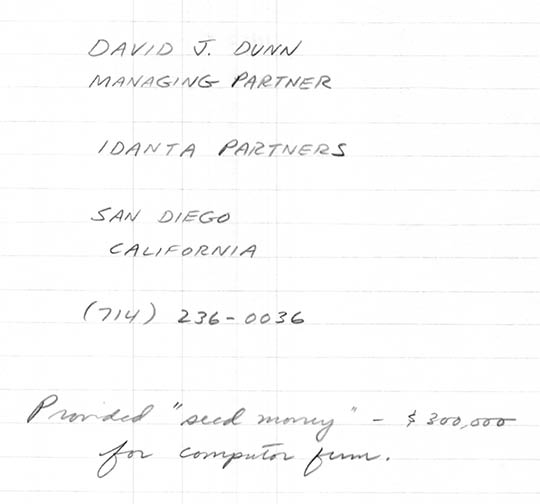 DAVID J. DUNN
MANAGING PARTNER
IDANTA PARTNERS
SAN DIEGO
CALIFORNIA
(714) 236-0036
Provided "seed money" - $300,000
for computor firm.